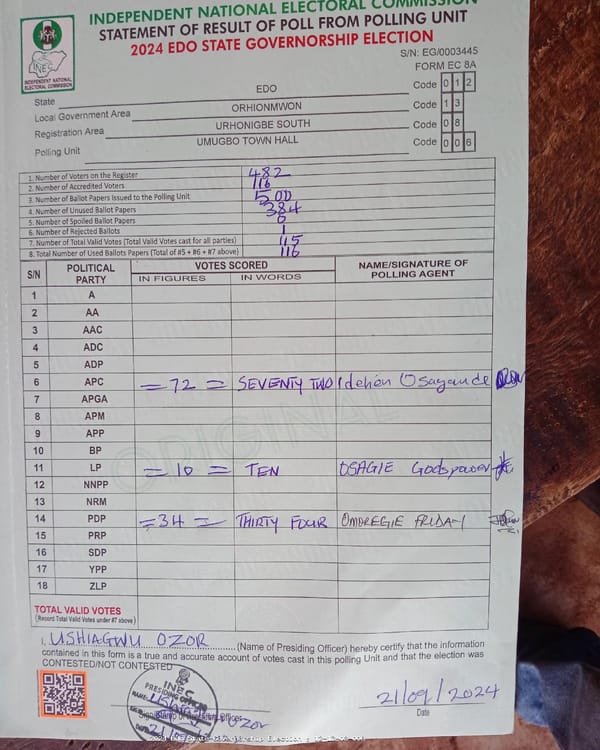 INDEPENDENT NATIONAL ELECTORAL COMMISSION
STATEMENT OF RESULT OF POLL FROM POLLING UNIT
2024 EDO STATE GOVERNORSHIP ELECTION
INEC
INDEPENDENT NATIONAL
ELECTORAL COMMISSION
S/N: EG/0003445
FORM EC 8A
State EDO Code 0 1 2
Local Government Area ORHIONMWON Code 1 3
Registration Area URHONIGBE SOUTH Code 0 8
Polling Unit UMUGBO TOWN HALL Code 0 0 6
1. Number of Voters on the Register 482
2. Number of Accredited Voters 116
3. Number of Ballot Papers Issued to the Polling Unit 500
4. Number of Unused Ballot Papers 384
5. Number of Spoiled Ballot Papers 0
6. Number of Rejected Ballots 1
7. Number of Total Valid Votes (Total Valid Votes cast for all parties) 115
8. Total Number of Used Ballots Papers (Total of #5 + #6 + #7 above) 116
S/N POLITICAL PARTY VOTES SCORED NAME/SIGNATURE OF POLLING AGENT
IN FIGURES IN WORDS
1 A
2 AA
3 AAC
4 ADC
5 ADP
6 APC =72= SEVENTY TWO Idehen Osayande
7 APGA
8 APM
9 APP
10 BP
11 LP =10= TEN OSAGIE Godspower
12 NNPP
13 NRM
14 PDP =34= THIRTY FOUR OMOREGIE FRIDAY
15 PRP
16 SDP
17 YPP
18 ZLP
ORIGINAL
TOTAL VALID VOTES
(Record Total Valid Votes under #7 above)
I, USHIAGWU OZOR (Name of Presiding Officer) hereby certify that the information
contained in this form is a true and accurate account of votes cast in this polling Unit and that the election was
CONTESTED/NOT CONTESTED
INEC
PRESIDING OFFICER
NAME:
OZOR
21/09/2024
Date